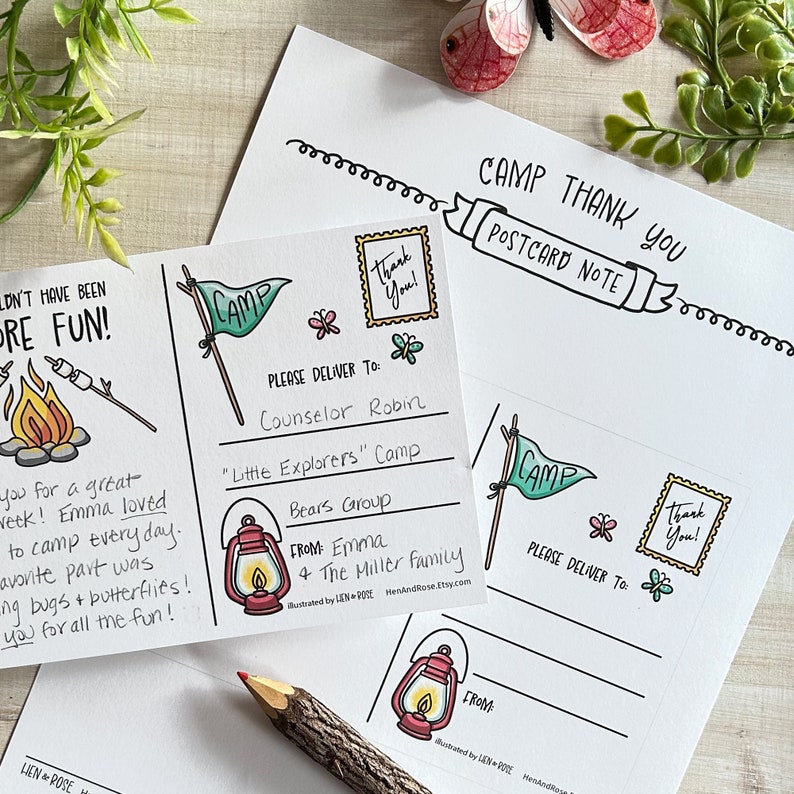 CAMP THANK YOU
POSTCARD NOTE
HAVE BEEN
FUN!
you for a great
week! Emma loved
to camp every day.
part was
bugs + butterflies!
you for all the fun!
CAMP
Thank
You!
PLEASE DELIVER TO:
Counselor Robin
"Little Explorers" Camp
Bears Group
FROM: Emma
+ The Miller Family
illustrated by HEN & ROSE HenAndRose.Etsy.com
CAMP
Thank
You!
PLEASE DELIVER TO:
FROM:
illustrated by HEN & ROSE
HEN & ROSE